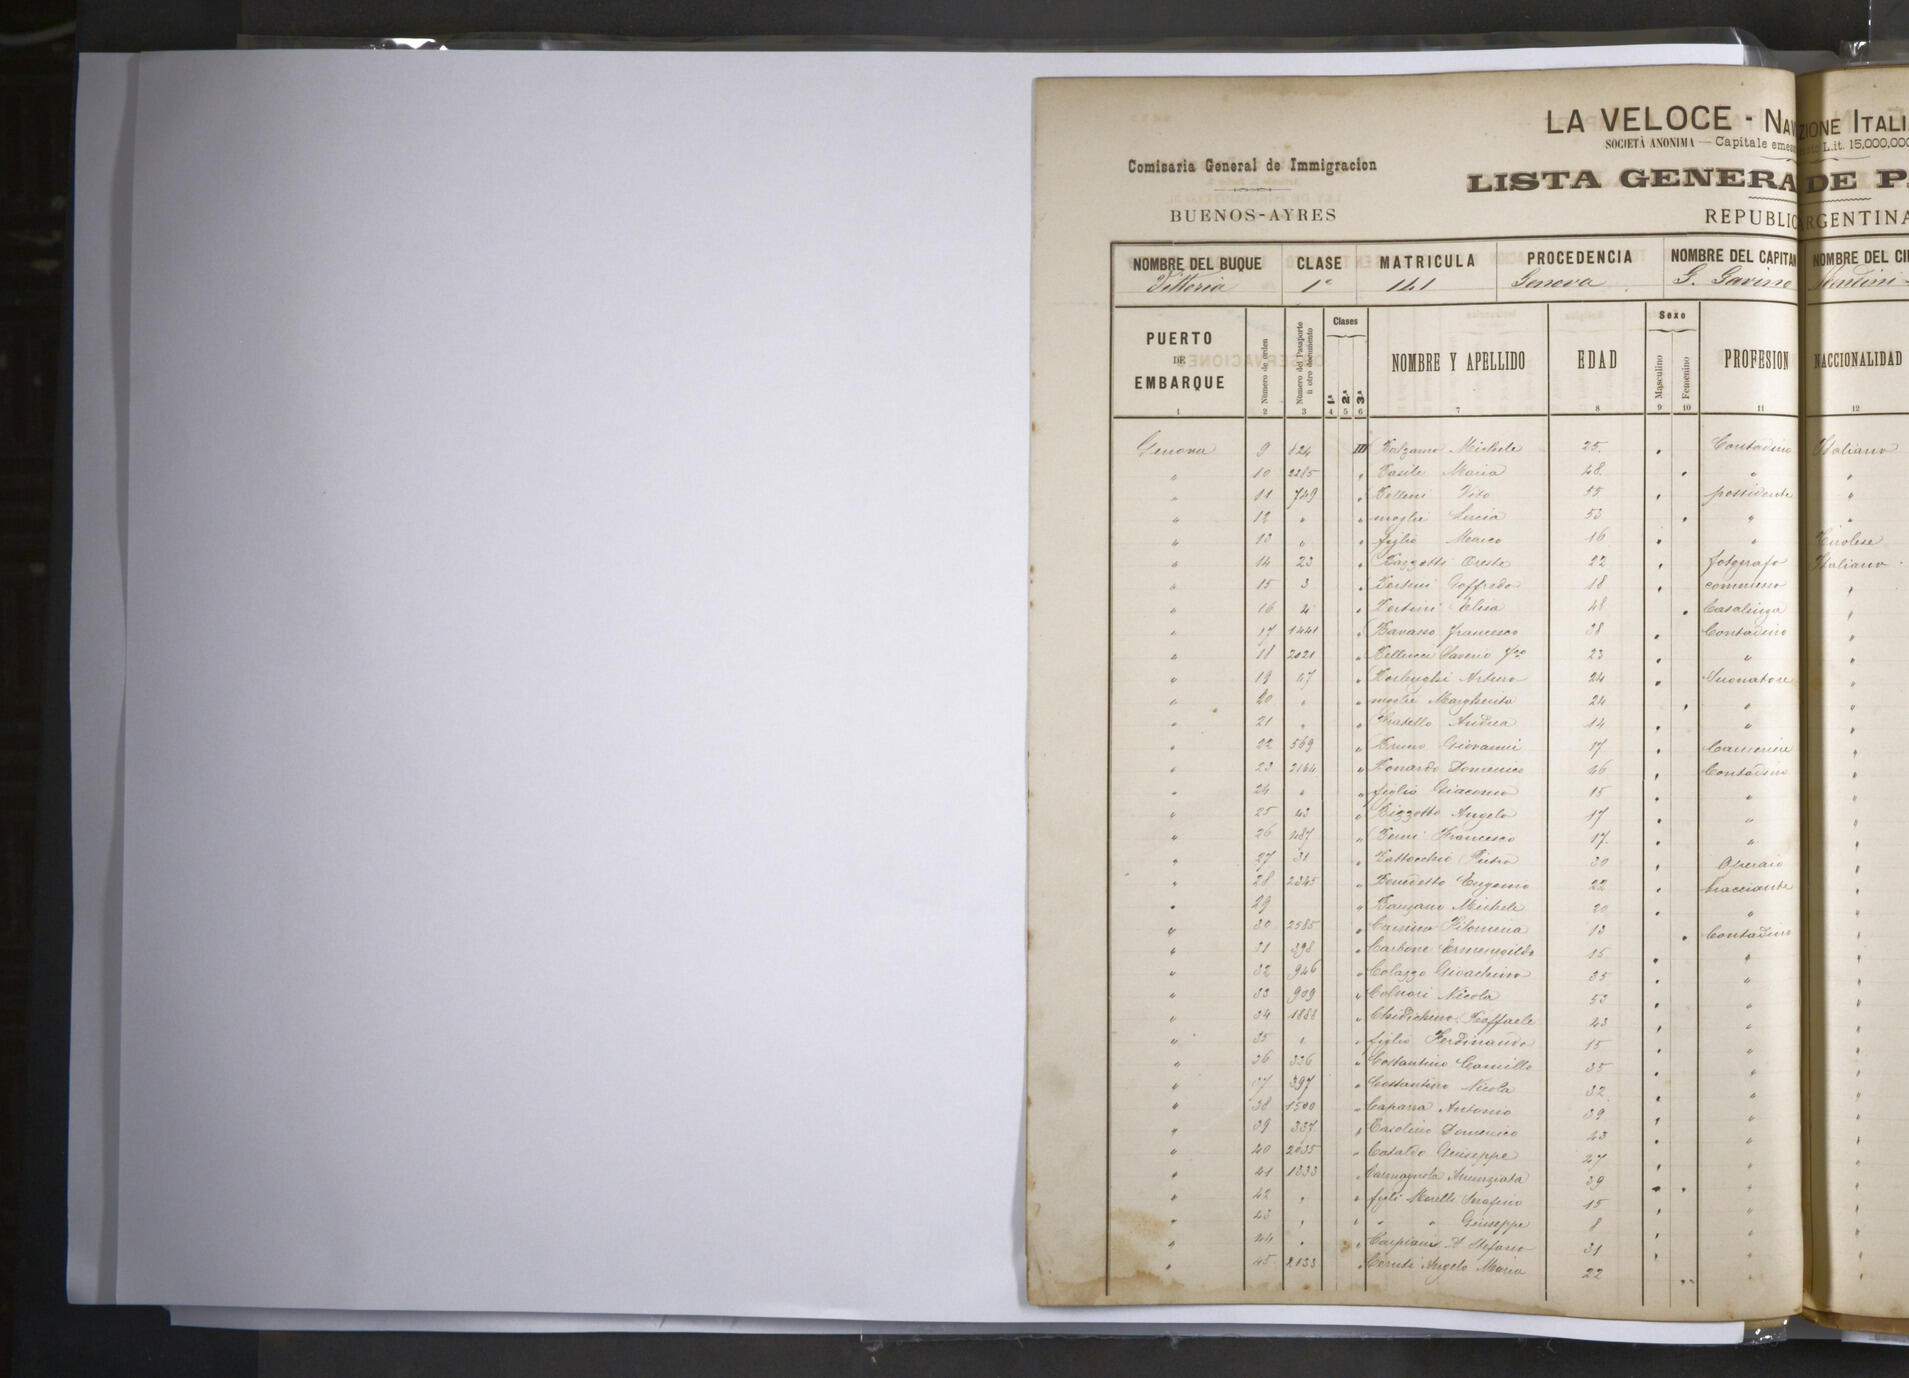 LA VELOCE - NAV ZIONE ITALI
SOCIETÀ ANONIMA — Capitale emes L.it. 15,000,000
Comisaria General de Immigracion
LISTA GENERA DE P
BUENOS-AYRES
REPUBLIC RGENTINA
NOMBRE DEL BUQUE CLASE MATRICULA PROCEDENCIA NOMBRE DEL CAPITAN NOMBRE DEL CI
Vittoria 1ª 141 Genova G. Gavino
PUERTO DE EMBARQUE Número de orden Número del Pasaporte ú otro documento Clases 1ª 2ª 3ª NOMBRE Y APELLIDO EDAD Sexo Masculino Femenino PROFESION NACCIONALIDAD
1 2 3 4 5 6 7 8 9 10 11 12
Genova 9 624 III Balzamo Michele 25 Contadino Italiano
" 10 2285 " Basile Maria 48 " "
" 11 749 " Belleni Vito 55 possidente "
" 12 " " moglie Lucia 53 " "
" 13 " " figlio Marco 16 " Tirolese
" 14 23 " Bazzotti Oreste 22 fotografo Italiano
" 15 3 " Bertini Goffredo 18 commesso "
" 16 4 " Bertini Elisa 48 Casalinga "
" 17 1441 " Bavasso Francesco 38 Contadino "
" 18 2021 " Bellucci Saverio 23 " "
" 19 47 " Borlenghi Arturo 24 Suonatore "
" 20 " " moglie Margherita 24 " "
" 21 " " fratello Andrea 14 " "
" 22 569 " Bruno Giovanni 17 Cameriere "
" 23 2164 " Bonardo Domenico 46 Contadino "
" 24 " " figlio Giacomo 15 " "
" 25 43 " Bizzotto Angelo 17 " "
" 26 487 " Francesco 17 " "
" 27 31 " Battocchio Pietro 30 Operaio "
" 28 2345 " Benedetto Eugenio 22 bracciante "
" 29 " Banzano Michele 20 " "
" 30 2585 " Filomena 13 Contadino "
" 31 398 " Carbone Ermenegildo 15 " "
" 32 946 " Colazzo Gioachino 35 " "
" 33 909 " Nicola 53 " "
" 34 1888 " Chidichimo Raffaele 43 " "
" 35 " " figlio Ferdinando 15 " "
" 36 336 " Costantino Camillo 35 " "
" 37 397 " Costantino Nicola 32 " "
" 38 1500 " Caparra Antonio 39 " "
" 39 337 " Casolino Domenico 43 " "
" 40 2035 " Cataldo Giuseppe 27 " "
" 41 1333 " Carmagnola Annunziata 39 " "
" 42 " " figli Morelli Serafino 15 " "
" 43 " " " " Giuseppe 8 " "
" 44 " " Stefano 31 " "
" 45 2133 " Angelo Maria 22 " "